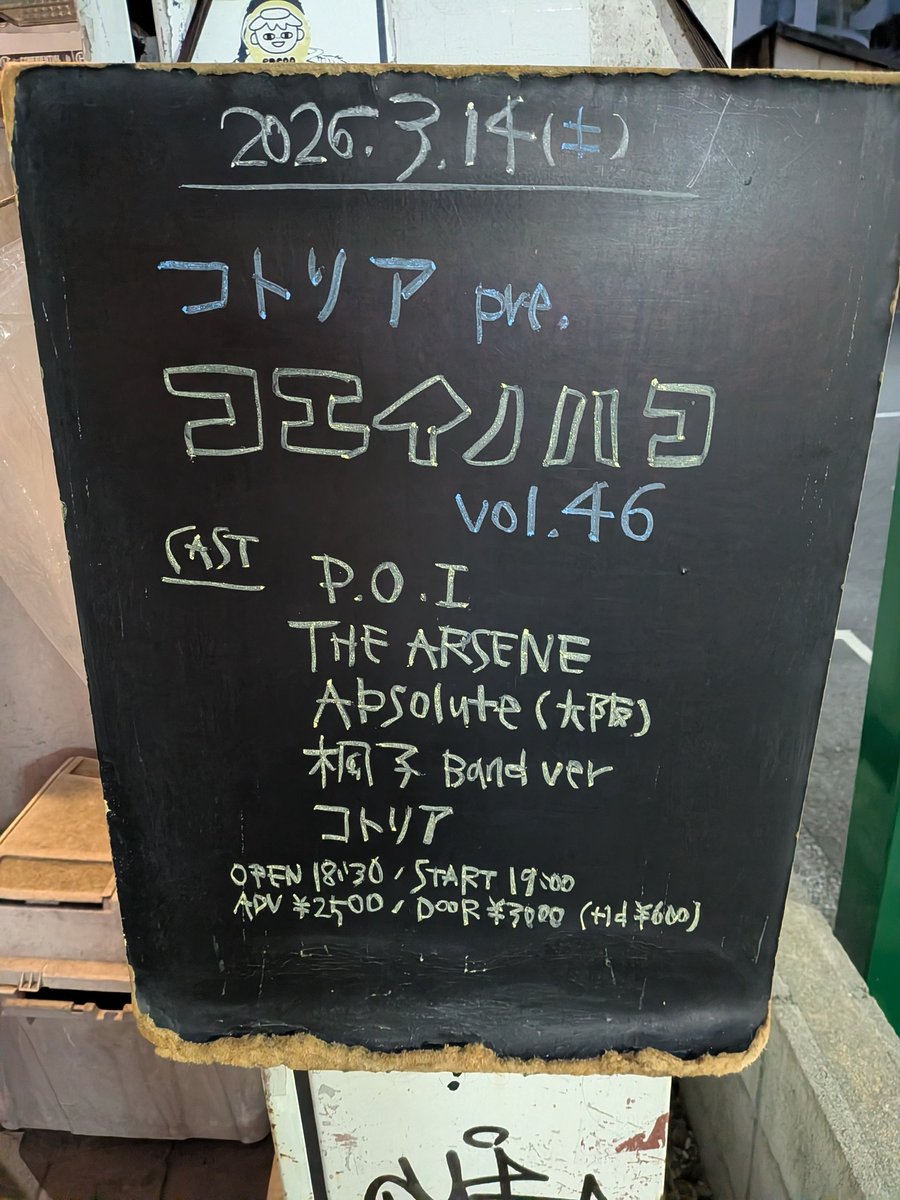 2026.3.14(土)
コトリア pre.
コエイノハコ
vol.46
CAST
P.O.I
THE ARSENE
Absolute(大阪)
桐子 Band ver
コトリア
OPEN 18:30/START 19:00
ADV ¥2500/DOOR ¥3000 (+1d ¥600)